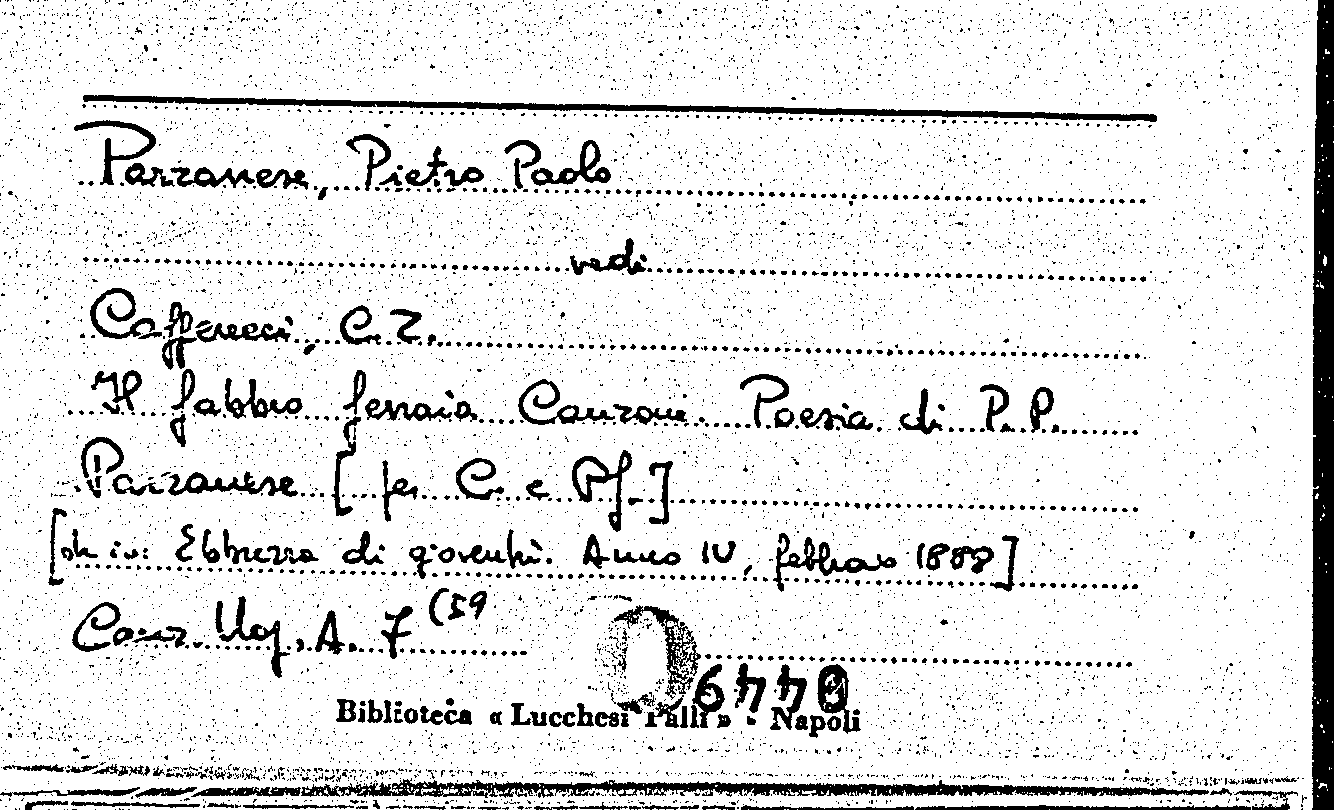 Parzanese, Pietro Paolo
vedi
Caffereci, C. Z.
Il fabbro ferraio Canzone. Poesia di P. P.
Parzanese [per C. e Pf.]
[sta in: Ebbrezza di gioventù. Anno IV, febbraio 1888]
Canz. Ug. A. 7 (59
06440
Biblioteca « Lucchesi Palli » - Napoli